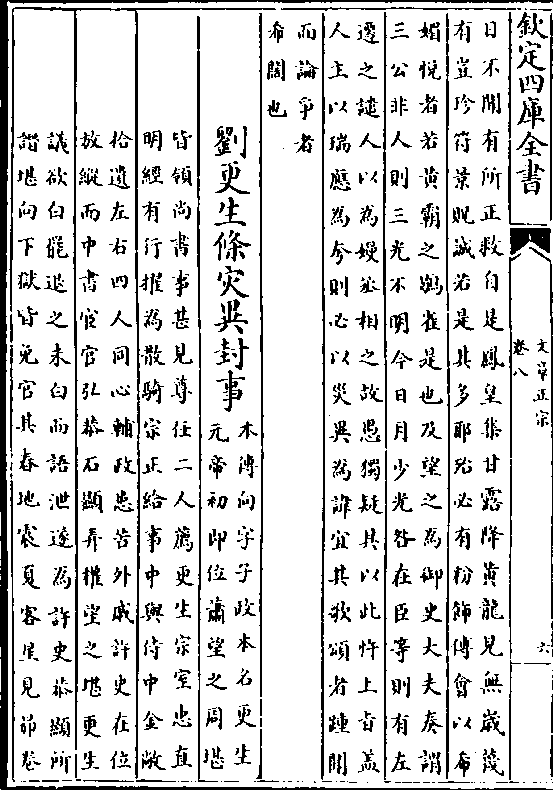 欽定四庫全書
文章正宗
卷八
六
日不聞有所正救自是鳳皇集甘露降黃龍見無歳蔑
有豈珍符景貺誠若是其多耶殆必有粉飾傅會以希
媚悦者若黃霸之鶡雀是也及望之為御史大夫奏謂
三公非人則三光不明今日月少光咎在臣等則有左
遷之譴人以為嫚丞相之故愚獨疑其以此忤上㫖盖
人主以瑞應為夸則必以災異為諱宜其歌頌者踵聞
而論爭者
希闊也
劉更生條灾異封事
本傳向字子政本名更生
元帝初即位蕭望之周堪
皆領尚書事甚見尊任二人薦更生宗室忠直
明經有行擢為散騎宗正給事中與侍中金敞
拾遺左右四人同心輔政患苦外戚許史在位
放縱而中書宦官弘恭石顯弄權望之堪更生
議欲白罷退之未白而語泄遂為許史恭顯所
譖堪向下獄皆免官其春地震夏客星見昴卷